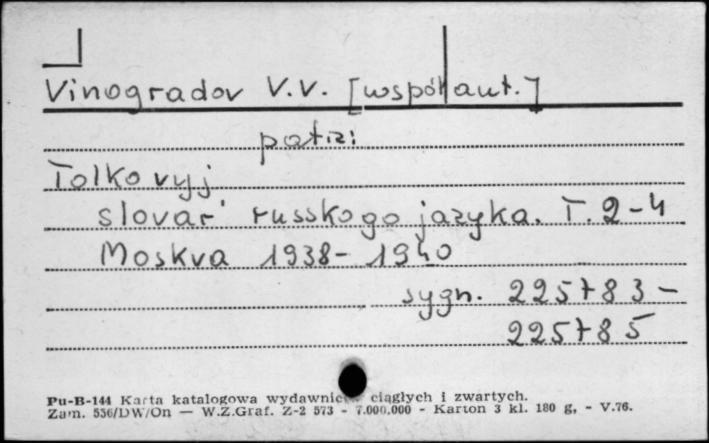 Vinogradov V.V. [współaut.]
patrz:
Tolkovyj
slovar' russkogo jazyka. T. 2-4
Moskva 1938- 1940
sygn. 225783-
225785
Pu-B-144 Karta katalogowa wydawnictw ciągłych i zwartych.
Zam. 556/DW/On — W.Z.Graf. Z-2 573 - 7.000.000 - Karton 3 kl. 180 g, - V.76.